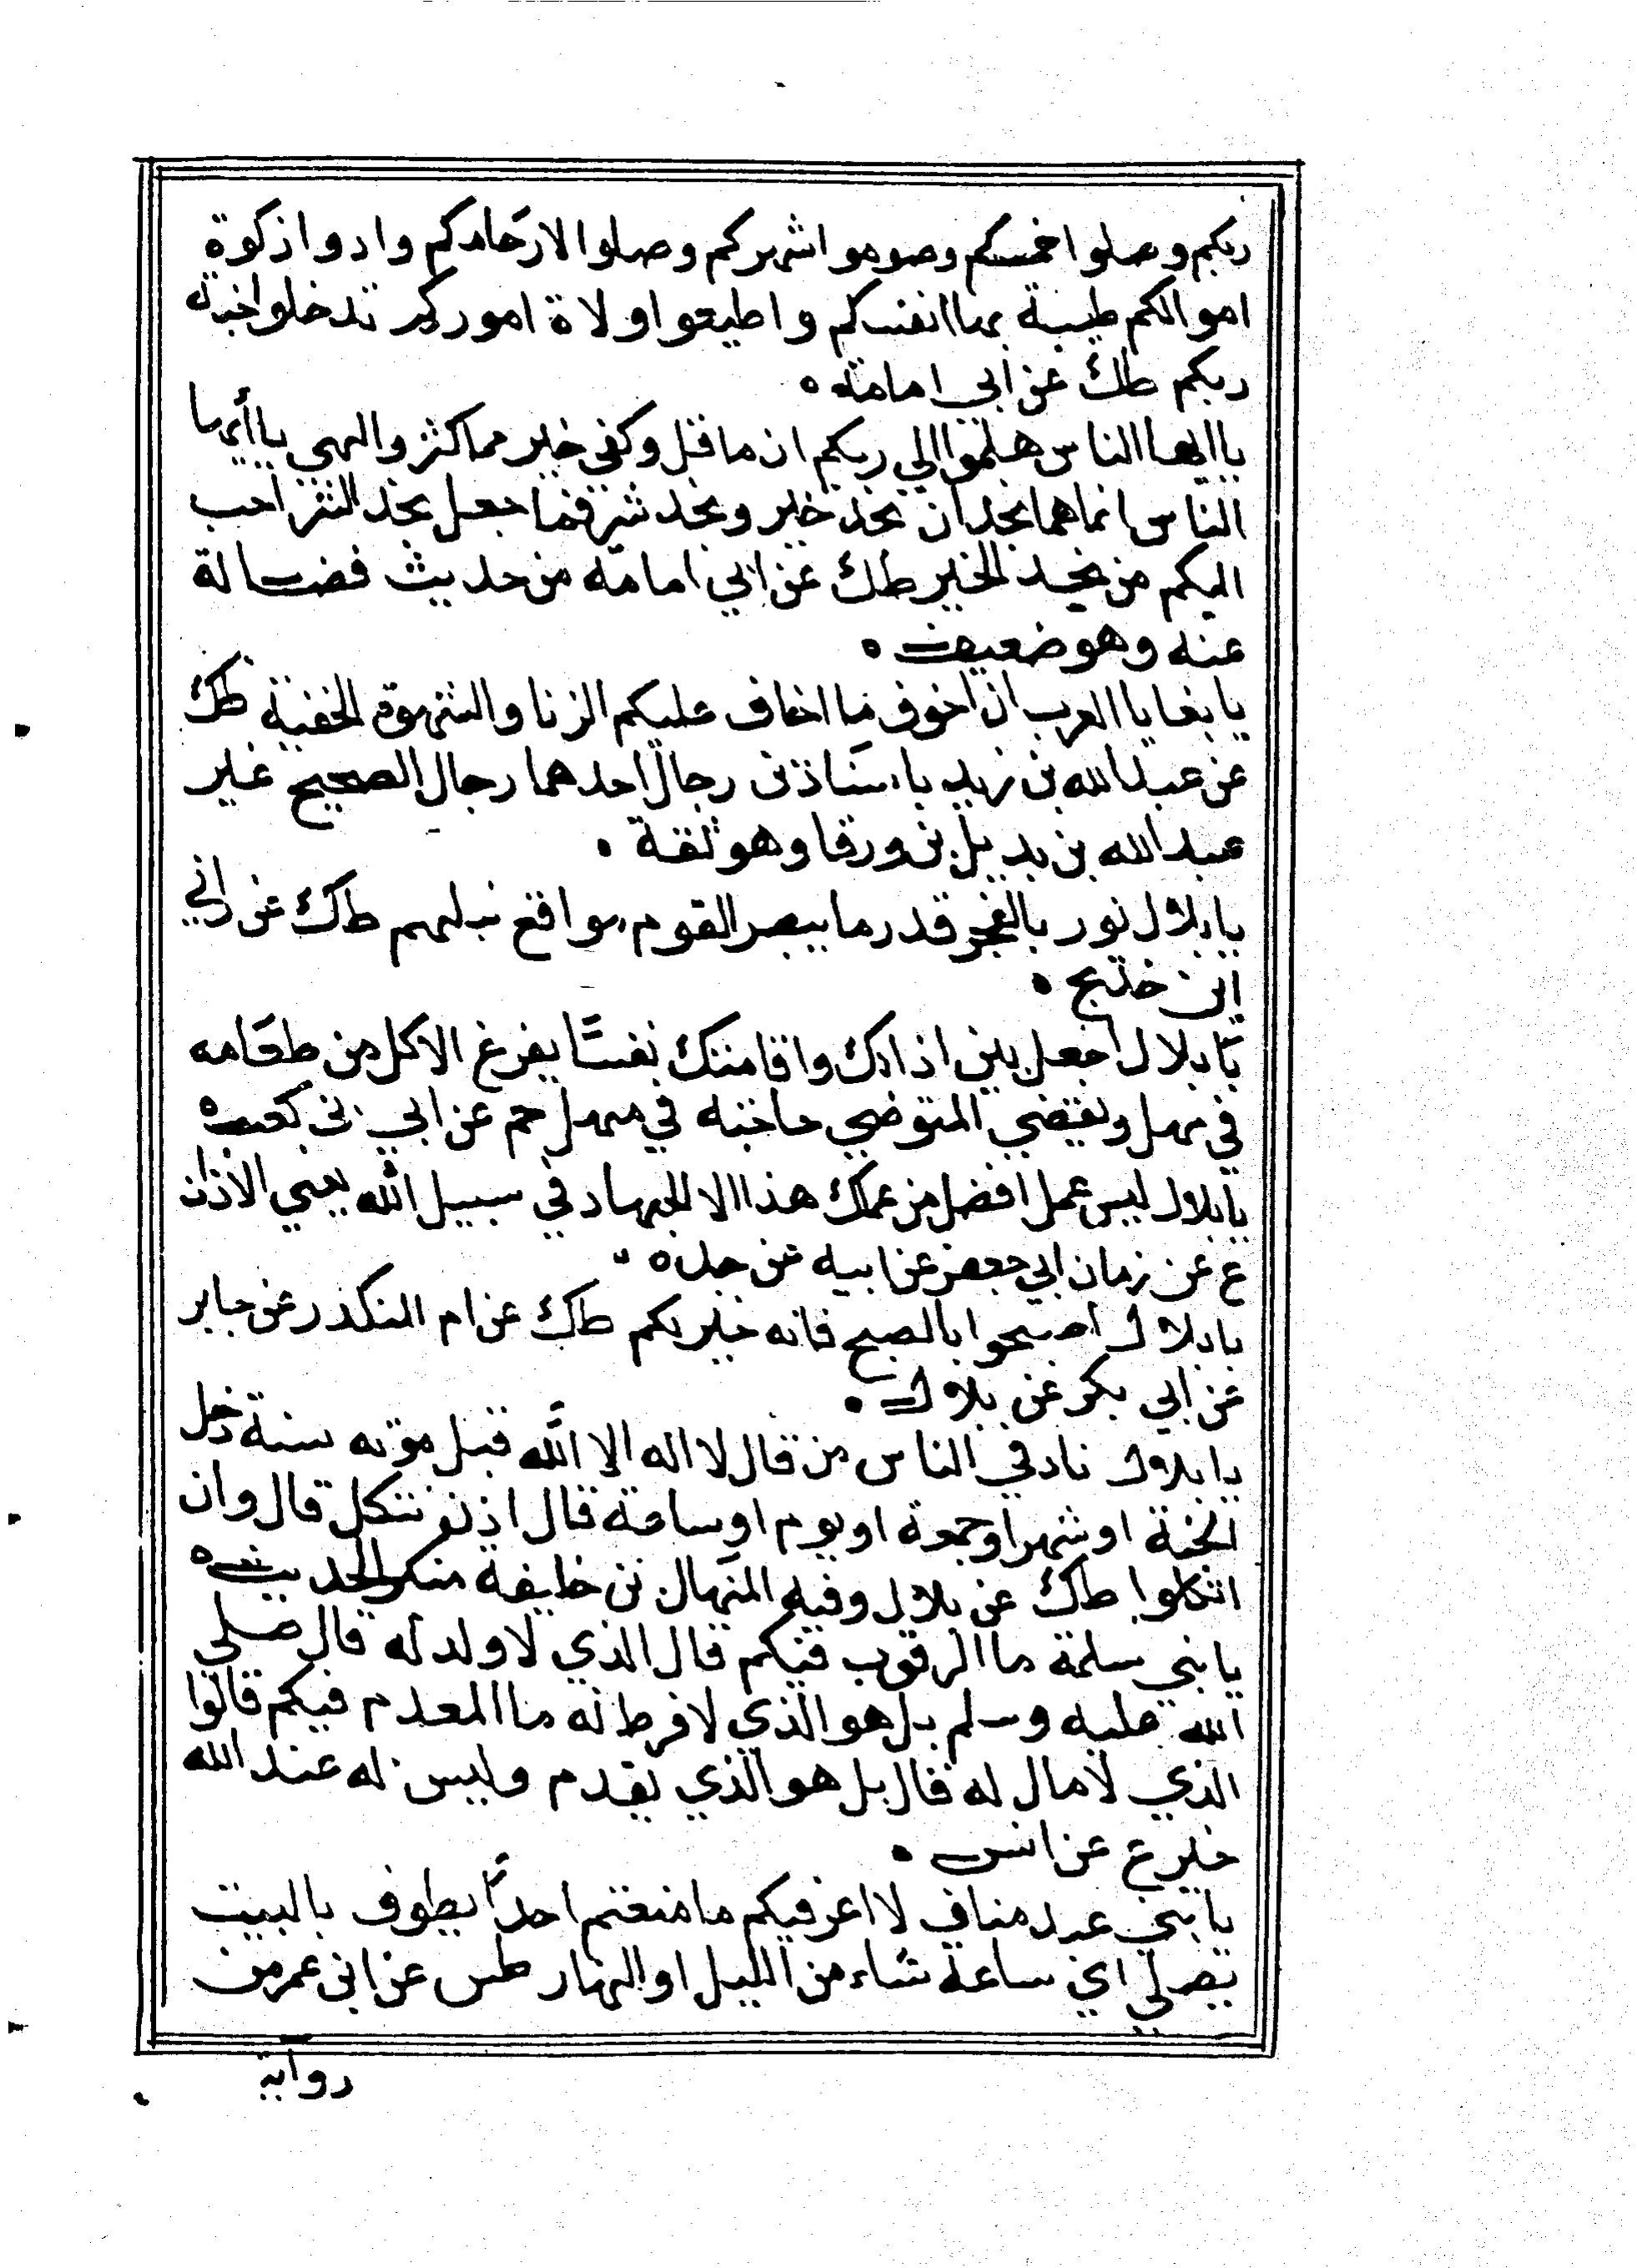 ربكم وصلوا خمسكم وصوموا شهركم وصلوا الارحامكم وادوا زكوة
اموالكم طيبة بها انفسكم واطيعوا ولاة اموركم تدخلوا جنة
ربكم طك عن ابي امامة ه
ياايها الناس هلموا الي ربكم ان ما قل وكفي خير مما كثر والهي ياأيها
الناس انما هما نجدان نجد خير ونجد شر فما جعل نجد الشر احب
اليكم من نجد الخير طك عن ابي امامة من حديث فضالة
عنه وهو ضعيف ه
يا بغايا العرب ان اخوف ما اخاف عليكم الزنا والشهوة الخفية طك
عن عبد الله بن زيد باسنادين رجال احدهما رجال الصحيح غير
عبد الله بن بديل بن ورقا وهو ثقة ه
يا بلال نور بالفجر قدر ما يبصر القوم مواقع نبلهم طك عن رافع
ابن خديج ه
يا بلال اجعل بين اذانك واقامتك نفسًا يفرغ الاكل من طعامه
في مهل ويقضي المتوضي حاجته في مهل حم عن ابي بن كعب ه
يا بلال ليس عمل افضل من عملك هذا الا الجهاد في سبيل الله يعني الاذان
ع عن زمان ابي جعفر عن ابيه عن جده
يا بلال اصبحوا بالصبح فانه خير لكم طك عن ام المنكدر عن جابر
عن ابي بكر عن بلال ه
يا بلال ناد في الناس من قال لا اله الا الله قبل موته سنة دخل
الجنة او شهر او جمعة او يوم او ساعة قال اذن نتكل قال وان
اتكلوا طك عن بلال وفيه المنهال بن خليفة منكر الحديث ه
يا بني سلمة ما الرقوب فيكم قال الذي لا ولد له قال صلي
الله عليه وسلم بل هو الذي لا فرط له ما المعدم فيكم قالوا
الذي لا مال له قال بل هو الذي يقدم وليس له عند الله
خير ع عن انس ه
يا بني عبد مناف لا اعرفيكم ما منعتم احدًا يطوف بالبيت
يصلي اي ساعة شاء من الليل او النهار طس عن ابن عمر من
رواية